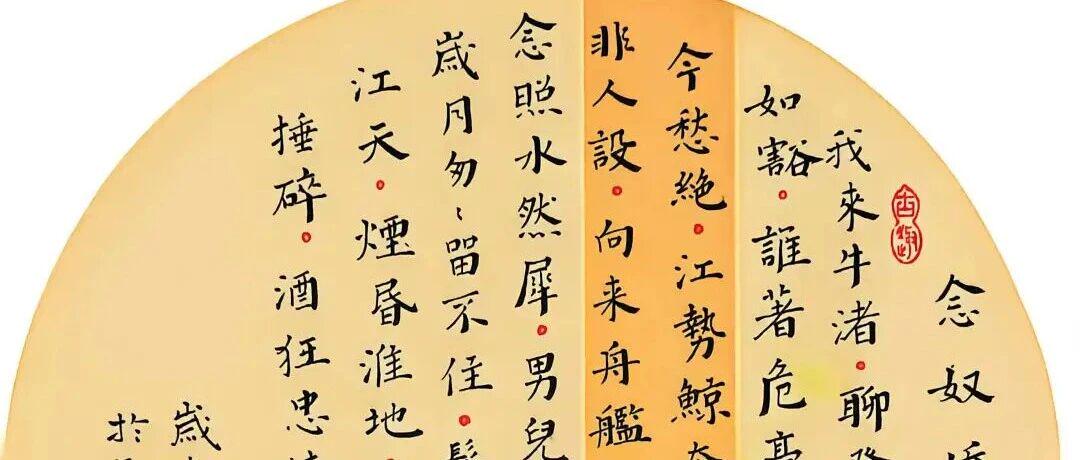 念奴
古趣
我來牛渚。聊
如豁。誰著危
今愁絶。江勢鯨
非人設。向来舟艦
念照水然犀。男兒
歲月匆〻留不住。
江天。煙昏淮地。
捶碎。酒狂忠
歲
於